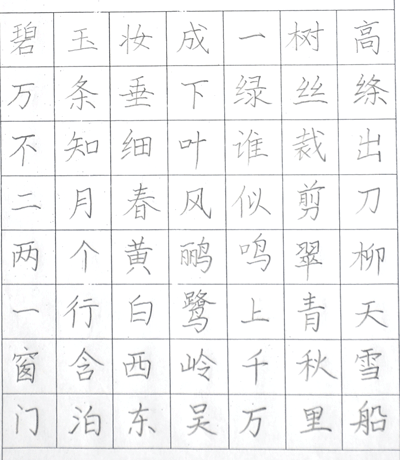 碧玉妆成一树高
万条垂下绿丝绦
不知细叶谁裁出
二月春风似剪刀
两个黄鹂鸣翠柳
一行白鹭上青天
窗含西岭千秋雪
门泊东吴万里船